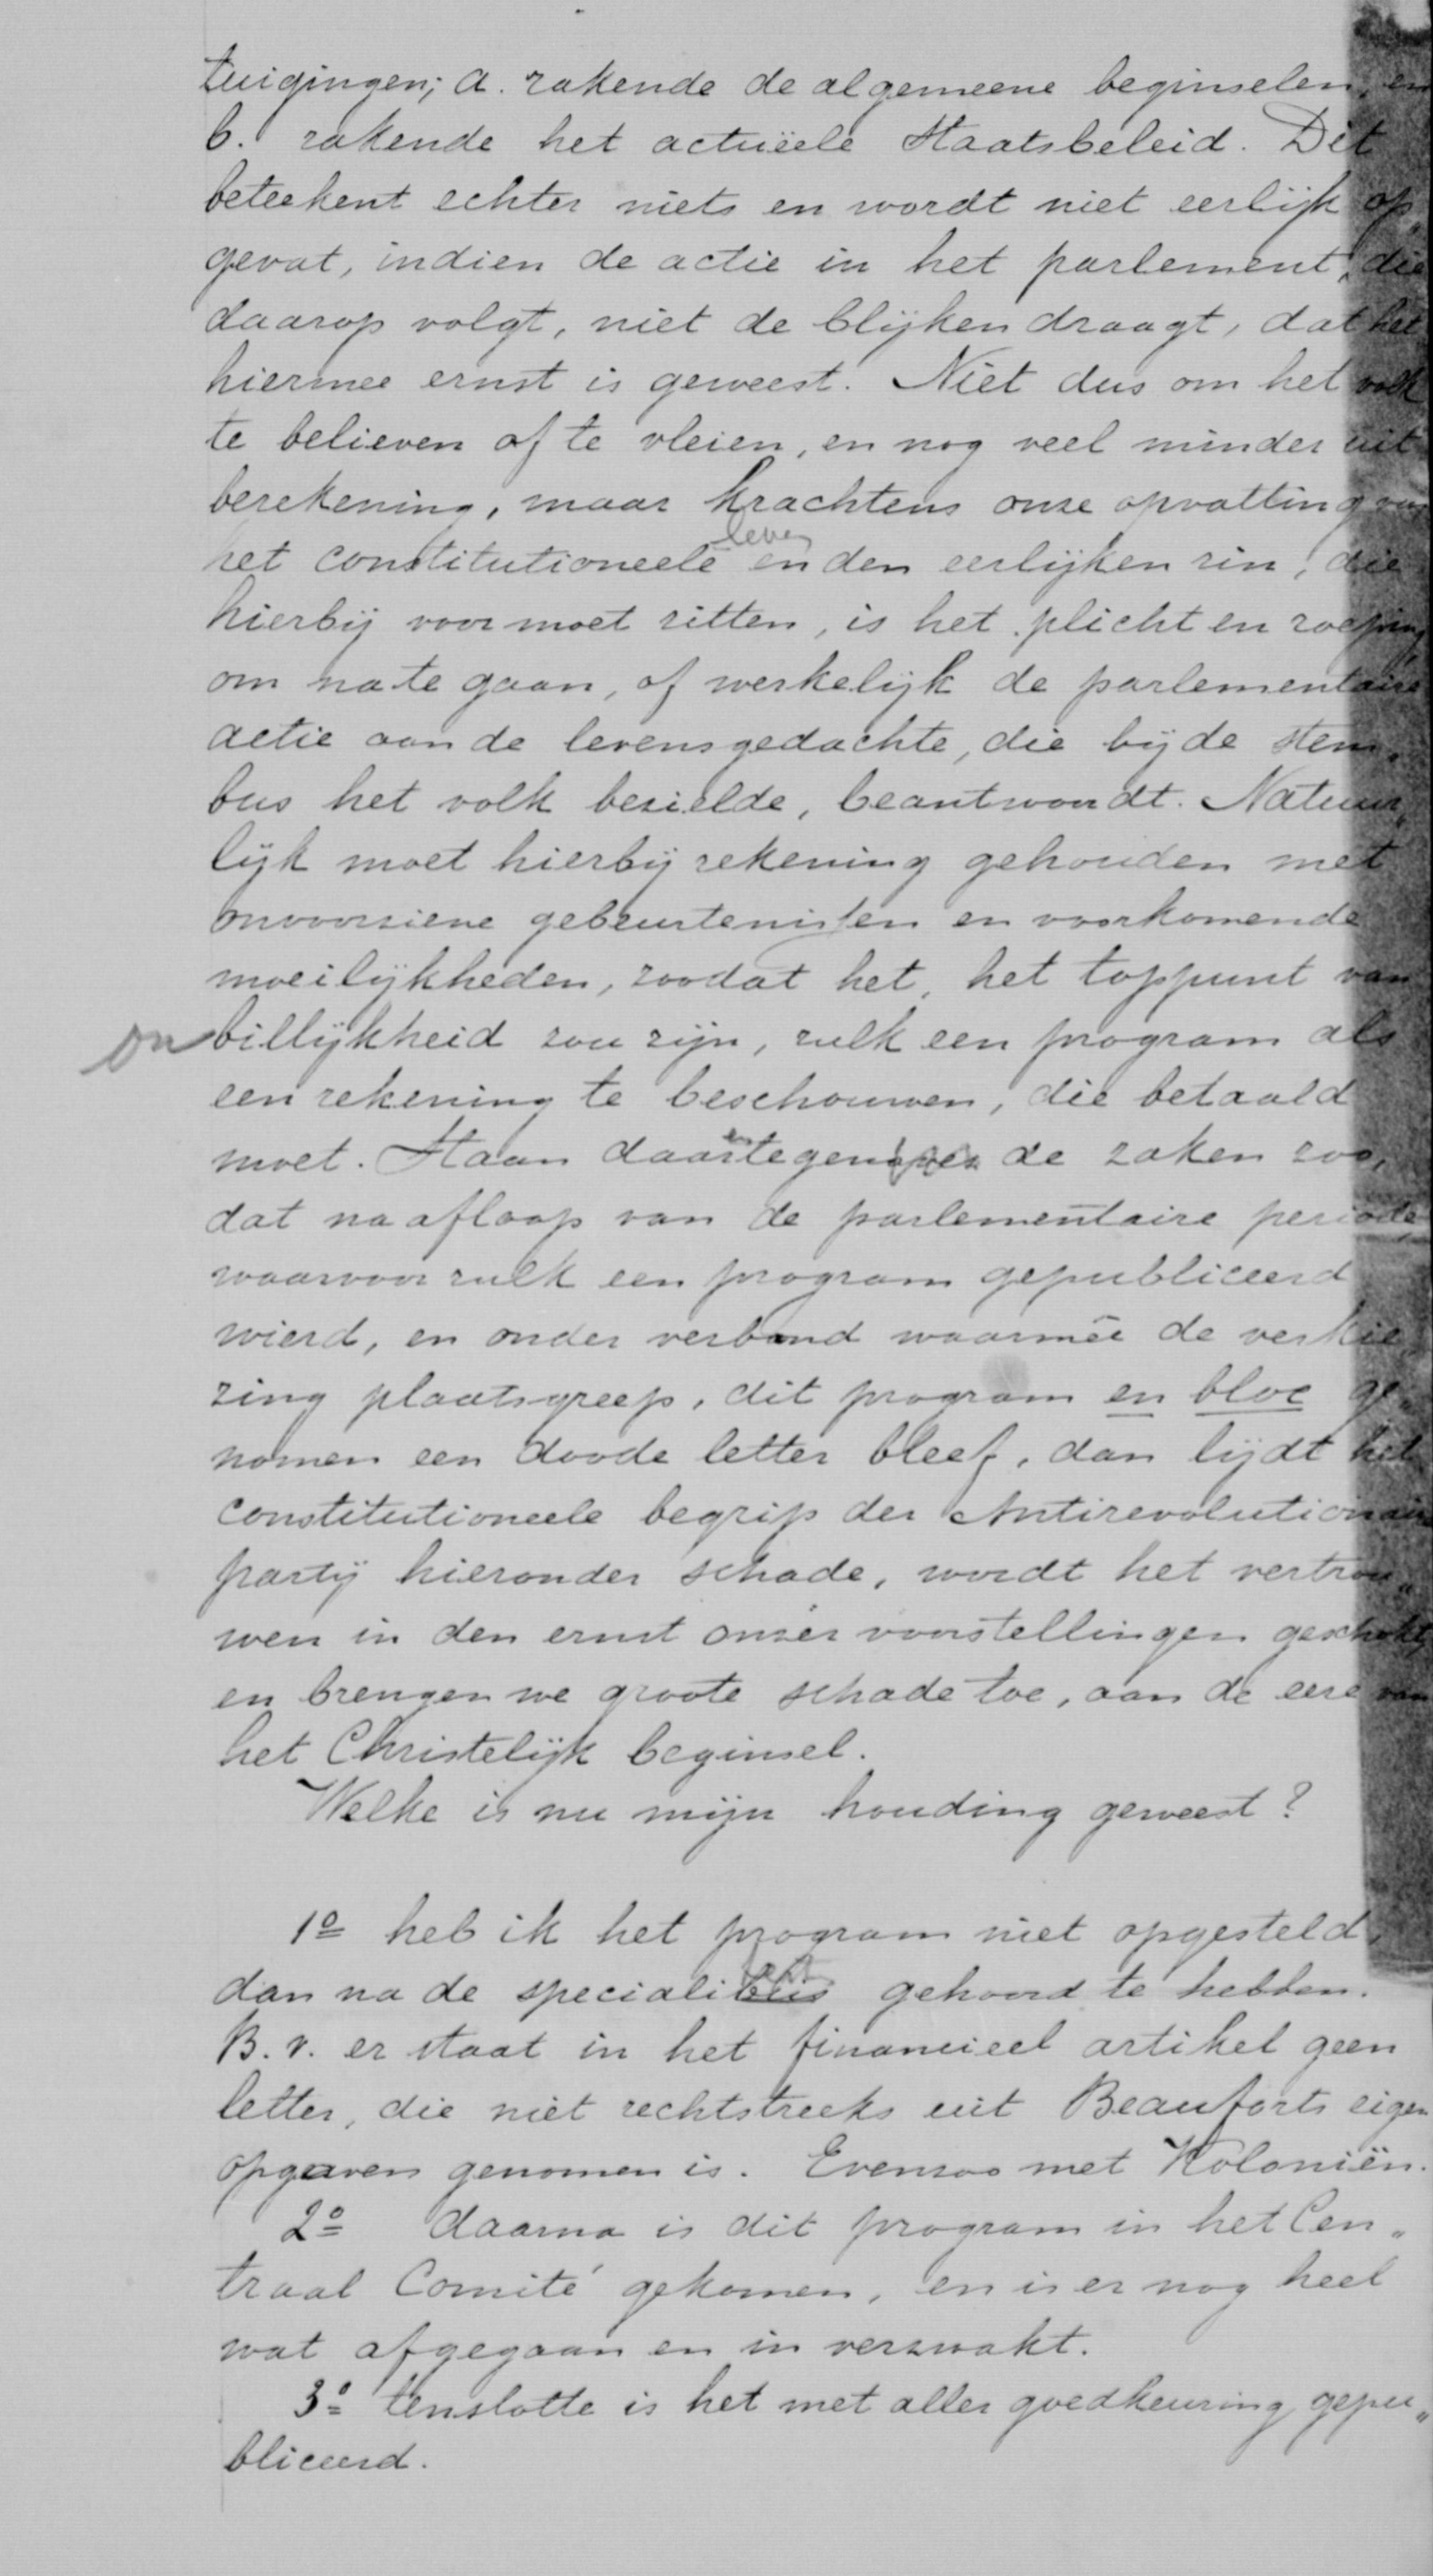 tuigingen; a. rakende de algemeene beginselen, en
b. rakende het actuëele Staatsbeleid. Dit
beteekent echter niets en wordt niet eerlijk op„
gevat, indien de actie in het parlement, die
daarop volgt, niet de blijken draagt, dat het
hiermee ernst is geweest. Niet dus om het volk
te believen of te vleien, en nog veel minder uit
berekening, maar krachtens onze opvatting van
leven
het constitutioneele en den eerlijken zin, die
hierbij voor moet zitten, is het plicht en roeping
om na te gaan, of werkelijk de parlementaire
actie aan de levensgedachte, die bij de stem„
bus het volk bezielde, beantwoordt. Natuur„
lijk moet hierbij rekening gehouden met
onvoorziene gebeurtenissen en voorkomende
moeilijkheden, zoodat het, het toppunt van
onbillijkheid zou zijn, zulk een program als
een rekening te beschouwen, die betaald
moet. Staan daartegen de zaken zoo,
dat na afloop van de parlementaire periode
waarvoor zulk een program gepubliceerd
wierd, en onder verband waarmêe de verkie„
zing plaatsgreep, dit program en bloc ge„
nomen een doode letter bleef, dan lijdt het
constitutioneele begrip der Antirevolutionaire
partij hieronder schade, wordt het vertrou„
wen in den ernst onzer voorstellingen geschokt,
en brengen we groote schade toe, aan de eere van
het Christelijk beginsel.
Welke is nu mijn houding geweest?
1º heb ik het program niet opgesteld,
dan na de specialiteit gehoord te hebben.
B.v. er staat in het financieel artikel geen
letter, die niet rechtstreeks uit Beauforts eigen
opgaven genomen is. Evenzoo met Koloniën.
2º daarna is dit program in het Cen„
traal Comité gekomen, en is er nog heel
wat afgegaan en in verzwakt.
3º tenslotte is het met aller goedkeuring gepu„
bliceerd.